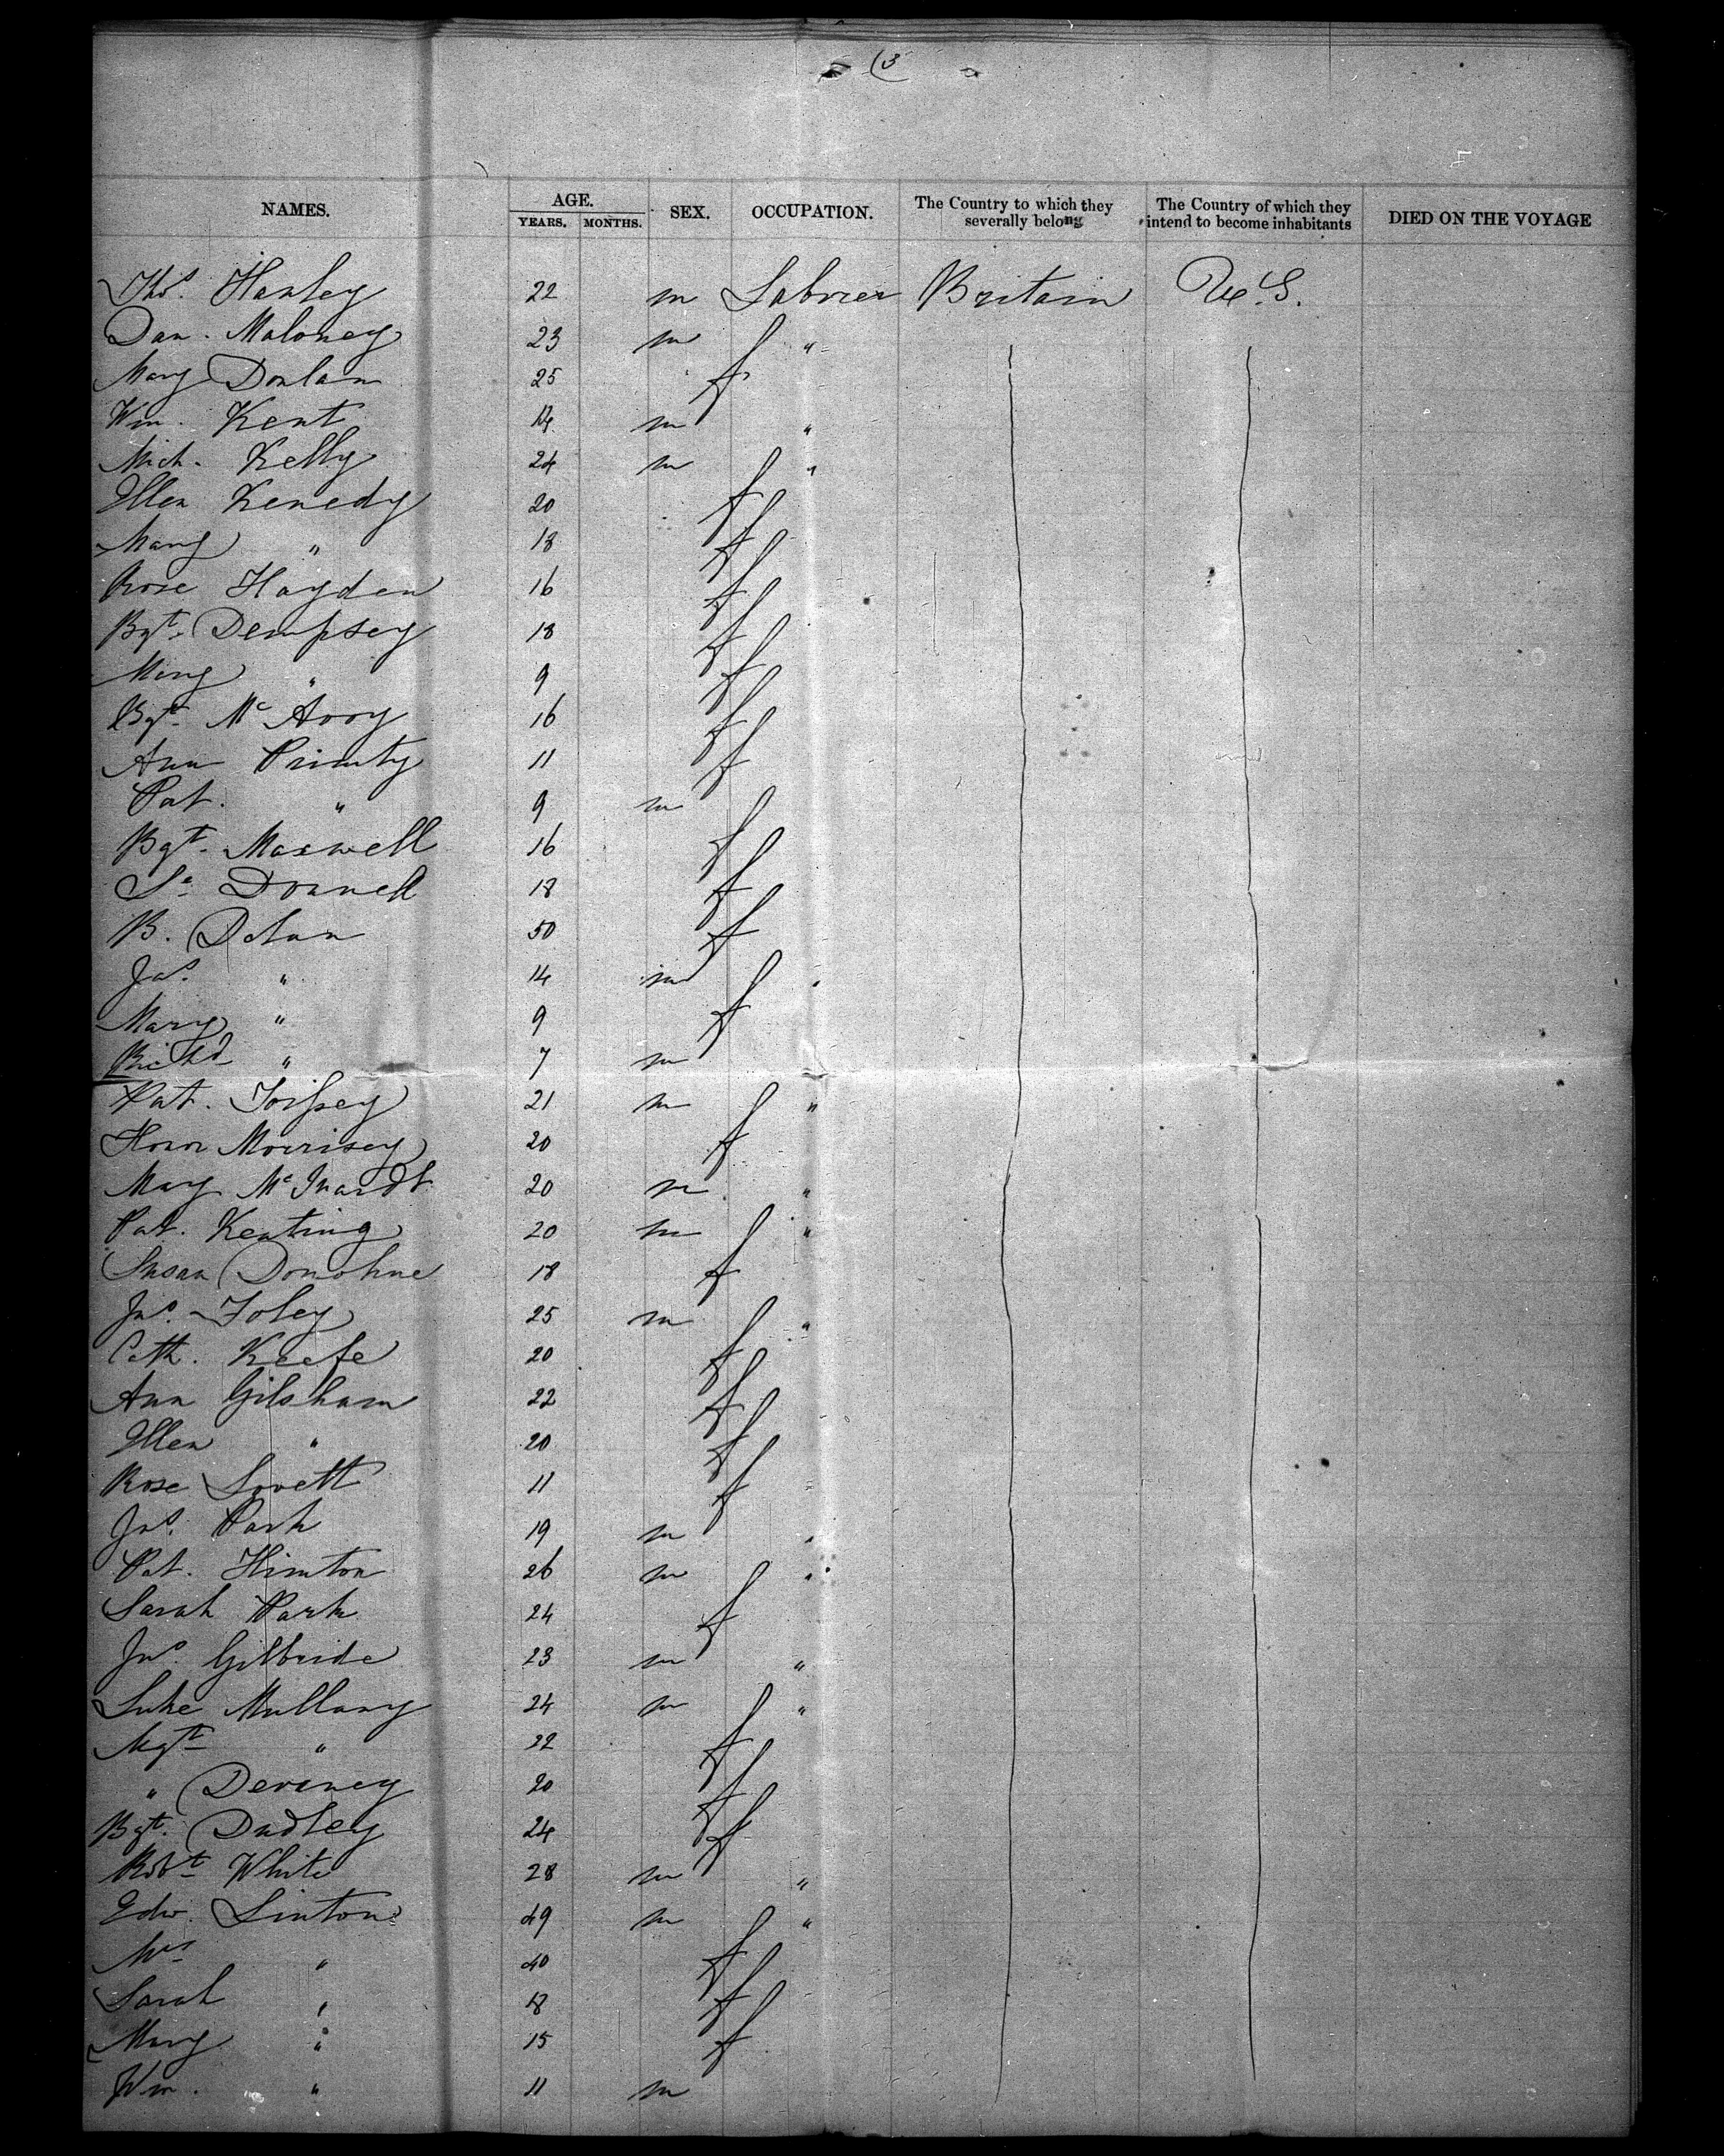 (3
NAMES. AGE. YEARS. MONTHS. SEX. OCCUPATION. The Country to which they severally belong The Country of which they intend to become inhabitants DIED ON THE VOYAGE
Thos. Hanley 22 m Labrer Britain U.S.
Dan. Maloney 23 m "
Mary Donlan 25 f
Wm. Kent m "
Mich. Kelly 24 m "
Ellen Kenedy 20 f
Mary " 18 f
Rose Hayden 16 f
Bgt. Dempsey 18 f
Mary " 9 f
Bgt. Mc Avoy 16 f
Ann 11 f
Pat. " 9 m
Bgt. Maxwell 16 f
Donnell 18 f
B. Dolan 50 f
Jas. " 14 m "
Mary " 9 f
Richd " 7 m
Pat. 21 m "
Honor Morrisey 20 f
Mary 20 m "
Pat. Keating 20 m "
Susan Donohue 18 f
Jno. Foley 25 m "
Cath. Keefe 20 f
Ann Gilsham 22 f
Ellen " 20 f
Rose Lovett 11 f
Jno. Park 19 m "
Pat. Hinton 26 m "
Sarah Park 24 f
Jno. Gilbride 23 m "
Luke Mullany 24 m "
Mgt " 22 f
" Devaney 20 f
Bgt. Dudley 24 f
Robt White 28 m "
Edw. Linton 49 m "
Mrs " 40 f
Sarah " 18 f
Mary " 15 f
Wm. " 11 m